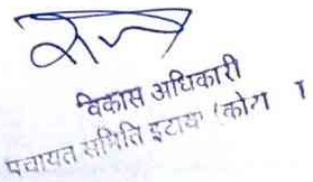 विकास अधिकारी
पचायत समिति इटावा (कोटा